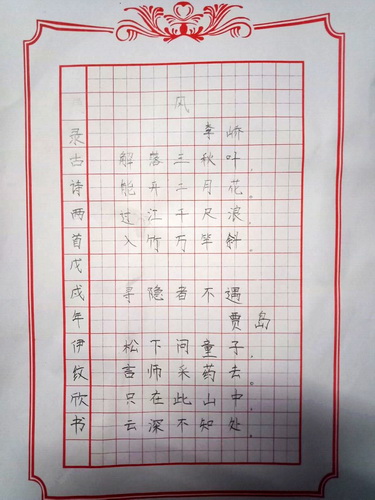 风
李峤
解落三秋叶，
能开二月花。
过江千尺浪，
入竹万竿斜。
寻隐者不遇
贾岛
松下问童子，
言师采药去。
只在此山中，
云深不知处。
录古诗两首戊戌年伊纹欣书